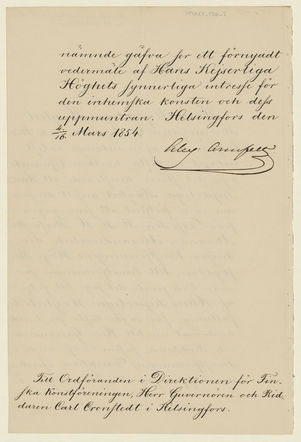 nämnde gåfva ser ett förnyadt
vedermäle af Hans Kejserliga
Höghets synnerliga intresse för
den inhemska konsten och dess
uppmuntran. Helsingfors den
4/16 Mars 1854.
Alex Armfelt
Till Ordföranden i Direktionen för Fin-
ska Konstföreningen, Herr Guvernören och Rid-
daren Carl Cronstedt i Helsingfors.